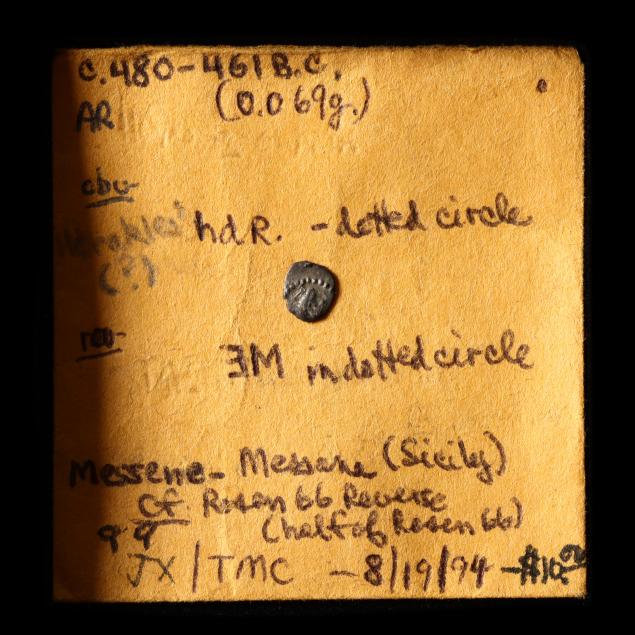 c. 480-461 B.C.
AR (0.069g.)
obv
Herakles? hd R. - dotted circle
(?)
rev
ƎM in dotted circle
Messene - Messana (Sicily)
cf. Rosen 66 Reverse
(half of Rosen 66)
JX / TMC - 8/19/94 - $10.00